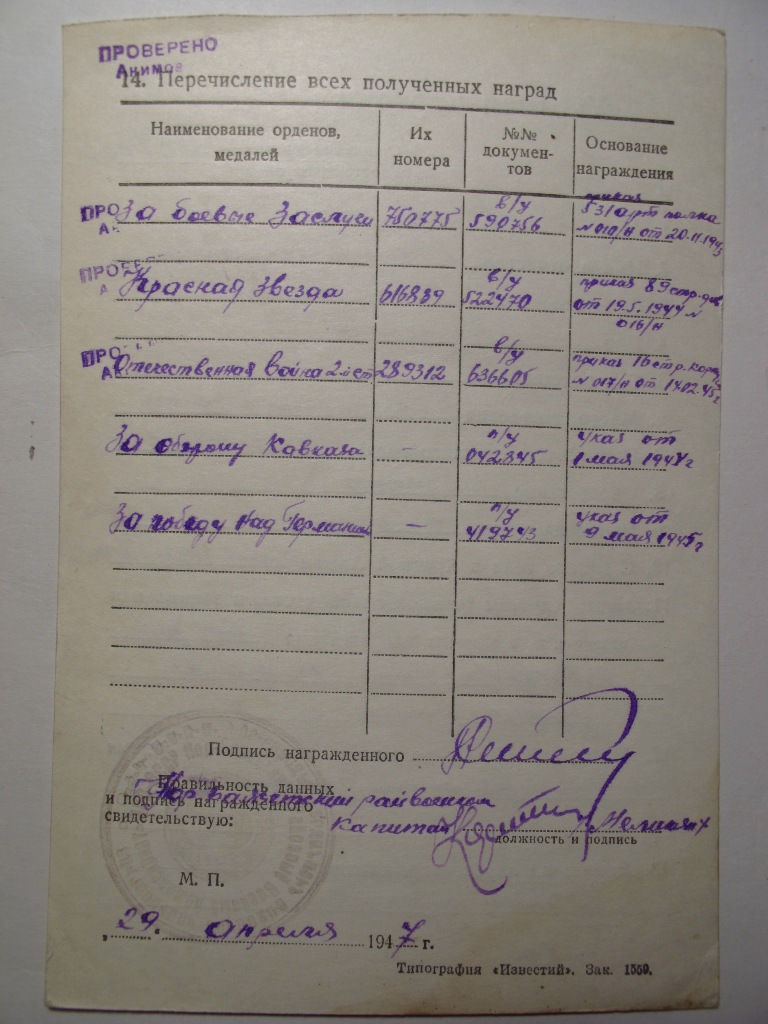 ПРОВЕРЕНО
Анимов
14. Перечисление всех полученных наград
Наименование орденов, медалей
Их номера
№№ документов
Основание награждения
За боевые заслуги 750775 в/у 590756 приказ 531 арт полка № 010/н от 20.11.1943
Красная звезда 616839 в/у 522470 приказ 89 стр. див от 19.5.1944 № 016/н
Отечественная война 2й ст 289312 в/у 636605 приказ 16 стр. № 017/н от 17.02.45г
За оборону Кавказа - п/у 042345 указ от 1 мая 1944г
За победу над Германией - п/у 419743 указ от 9 мая 1945г
Подпись награжденного
Правильность данных
и подпись награжденного
свидетельствую:
райвоенком
капитан
должность и подпись
М. П.
„29. апреля 1947 г.
Типография «Известий». Зак. 1550.